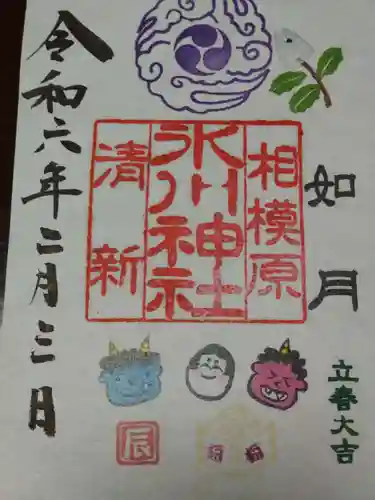 如月
立春大吉
相模原
氷川神社
清新
辰
令和六年二月三日